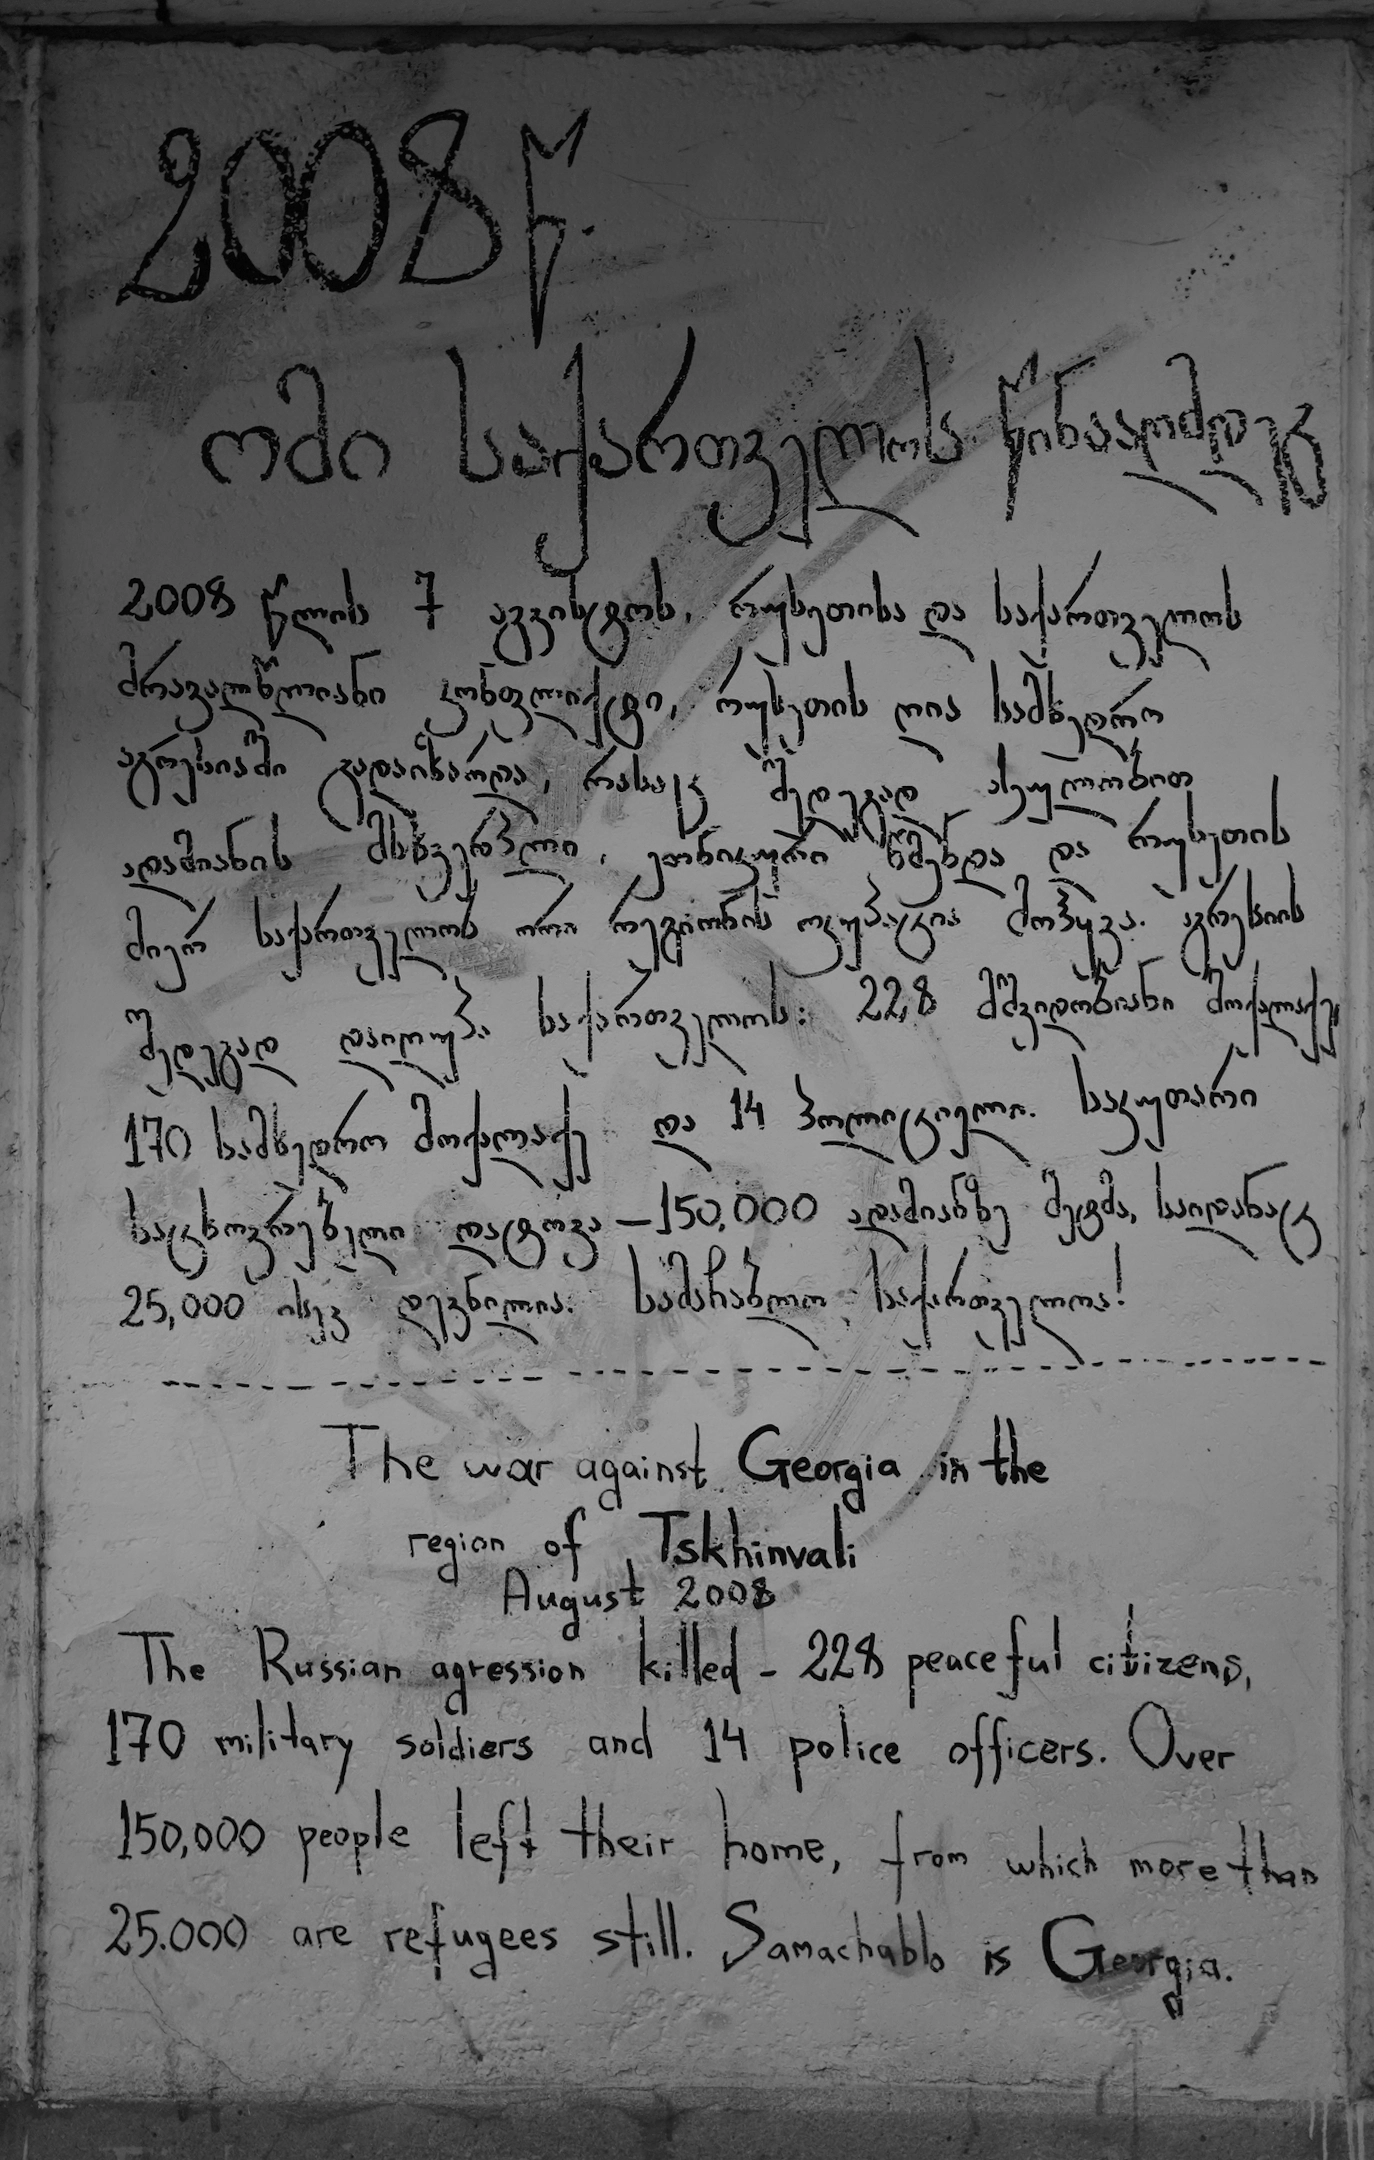 2008 წ.
ომი საქართველოს წინააღმდეგ
2008 წლის 7 აგვისტოს, რუსეთისა და საქართველოს
მრავალწლიანი კონფლიქტი, რუსეთის ღია სამხედრო
აგრესიაში გადაიზარდა, რასაც შედეგად ასეულობით
ადამიანის მსხვერპლი, ეთნიკური წმენდა და რუსეთის
მიერ საქართველოს ორი რეგიონის ოკუპაცია მოჰყვა. აგრესიის
შედეგად დაიღუპა საქართველოს: 228 მშვიდობიანი მოქალაქე,
170 სამხედრო მოქალაქე და 14 პოლიციელი. საკუთარი
საცხოვრებელი დატოვა – 150,000 ადამიანზე მეტმა, საიდანაც
25,000 ისევ დევნილია. სამაჩაბლო საქართველოა!
The war against Georgia in the
region of Tskhinvali
August 2008
The Russian agression killed - 228 peaceful citizens,
170 military soldiers and 14 police officers. Over
150,000 people left their home, from which more than
25.000 are refugees still. Samachablo is Georgia.